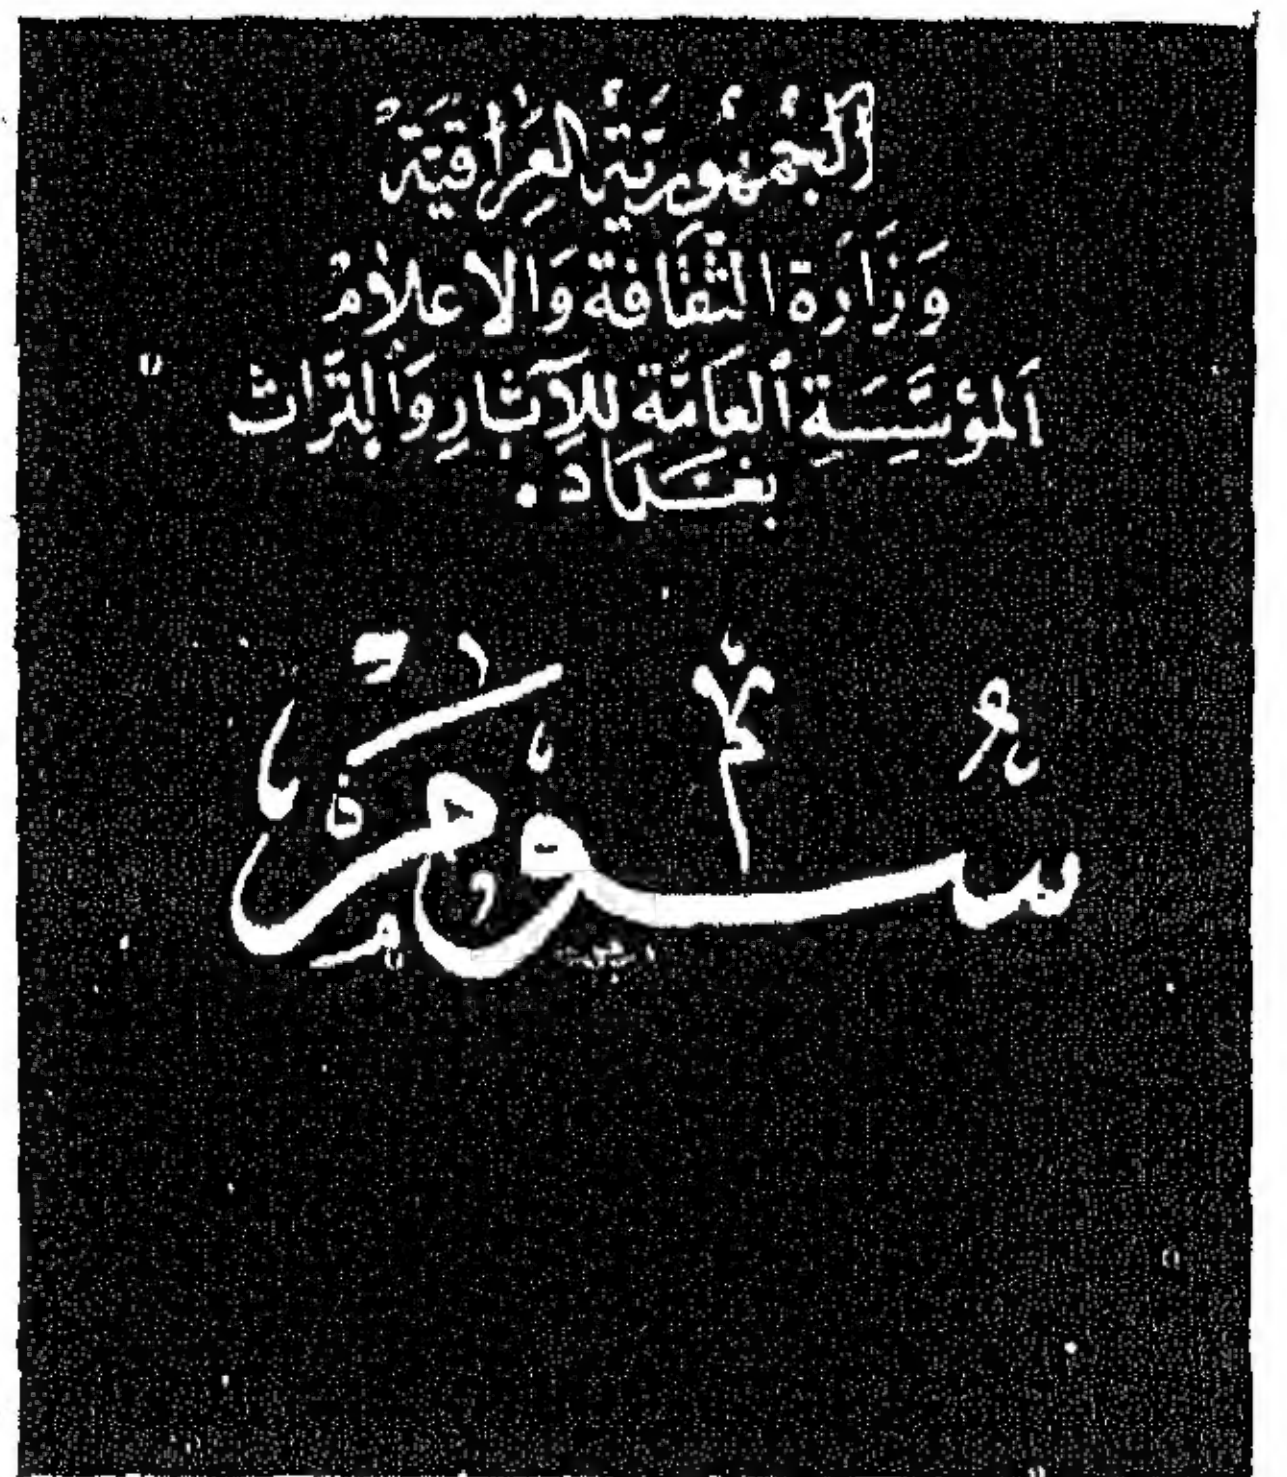 الجمهورية العراقية
وزارة الثقافة والاعلام
المؤسسة العامة للآثار والتراث
بغداد.
سومر